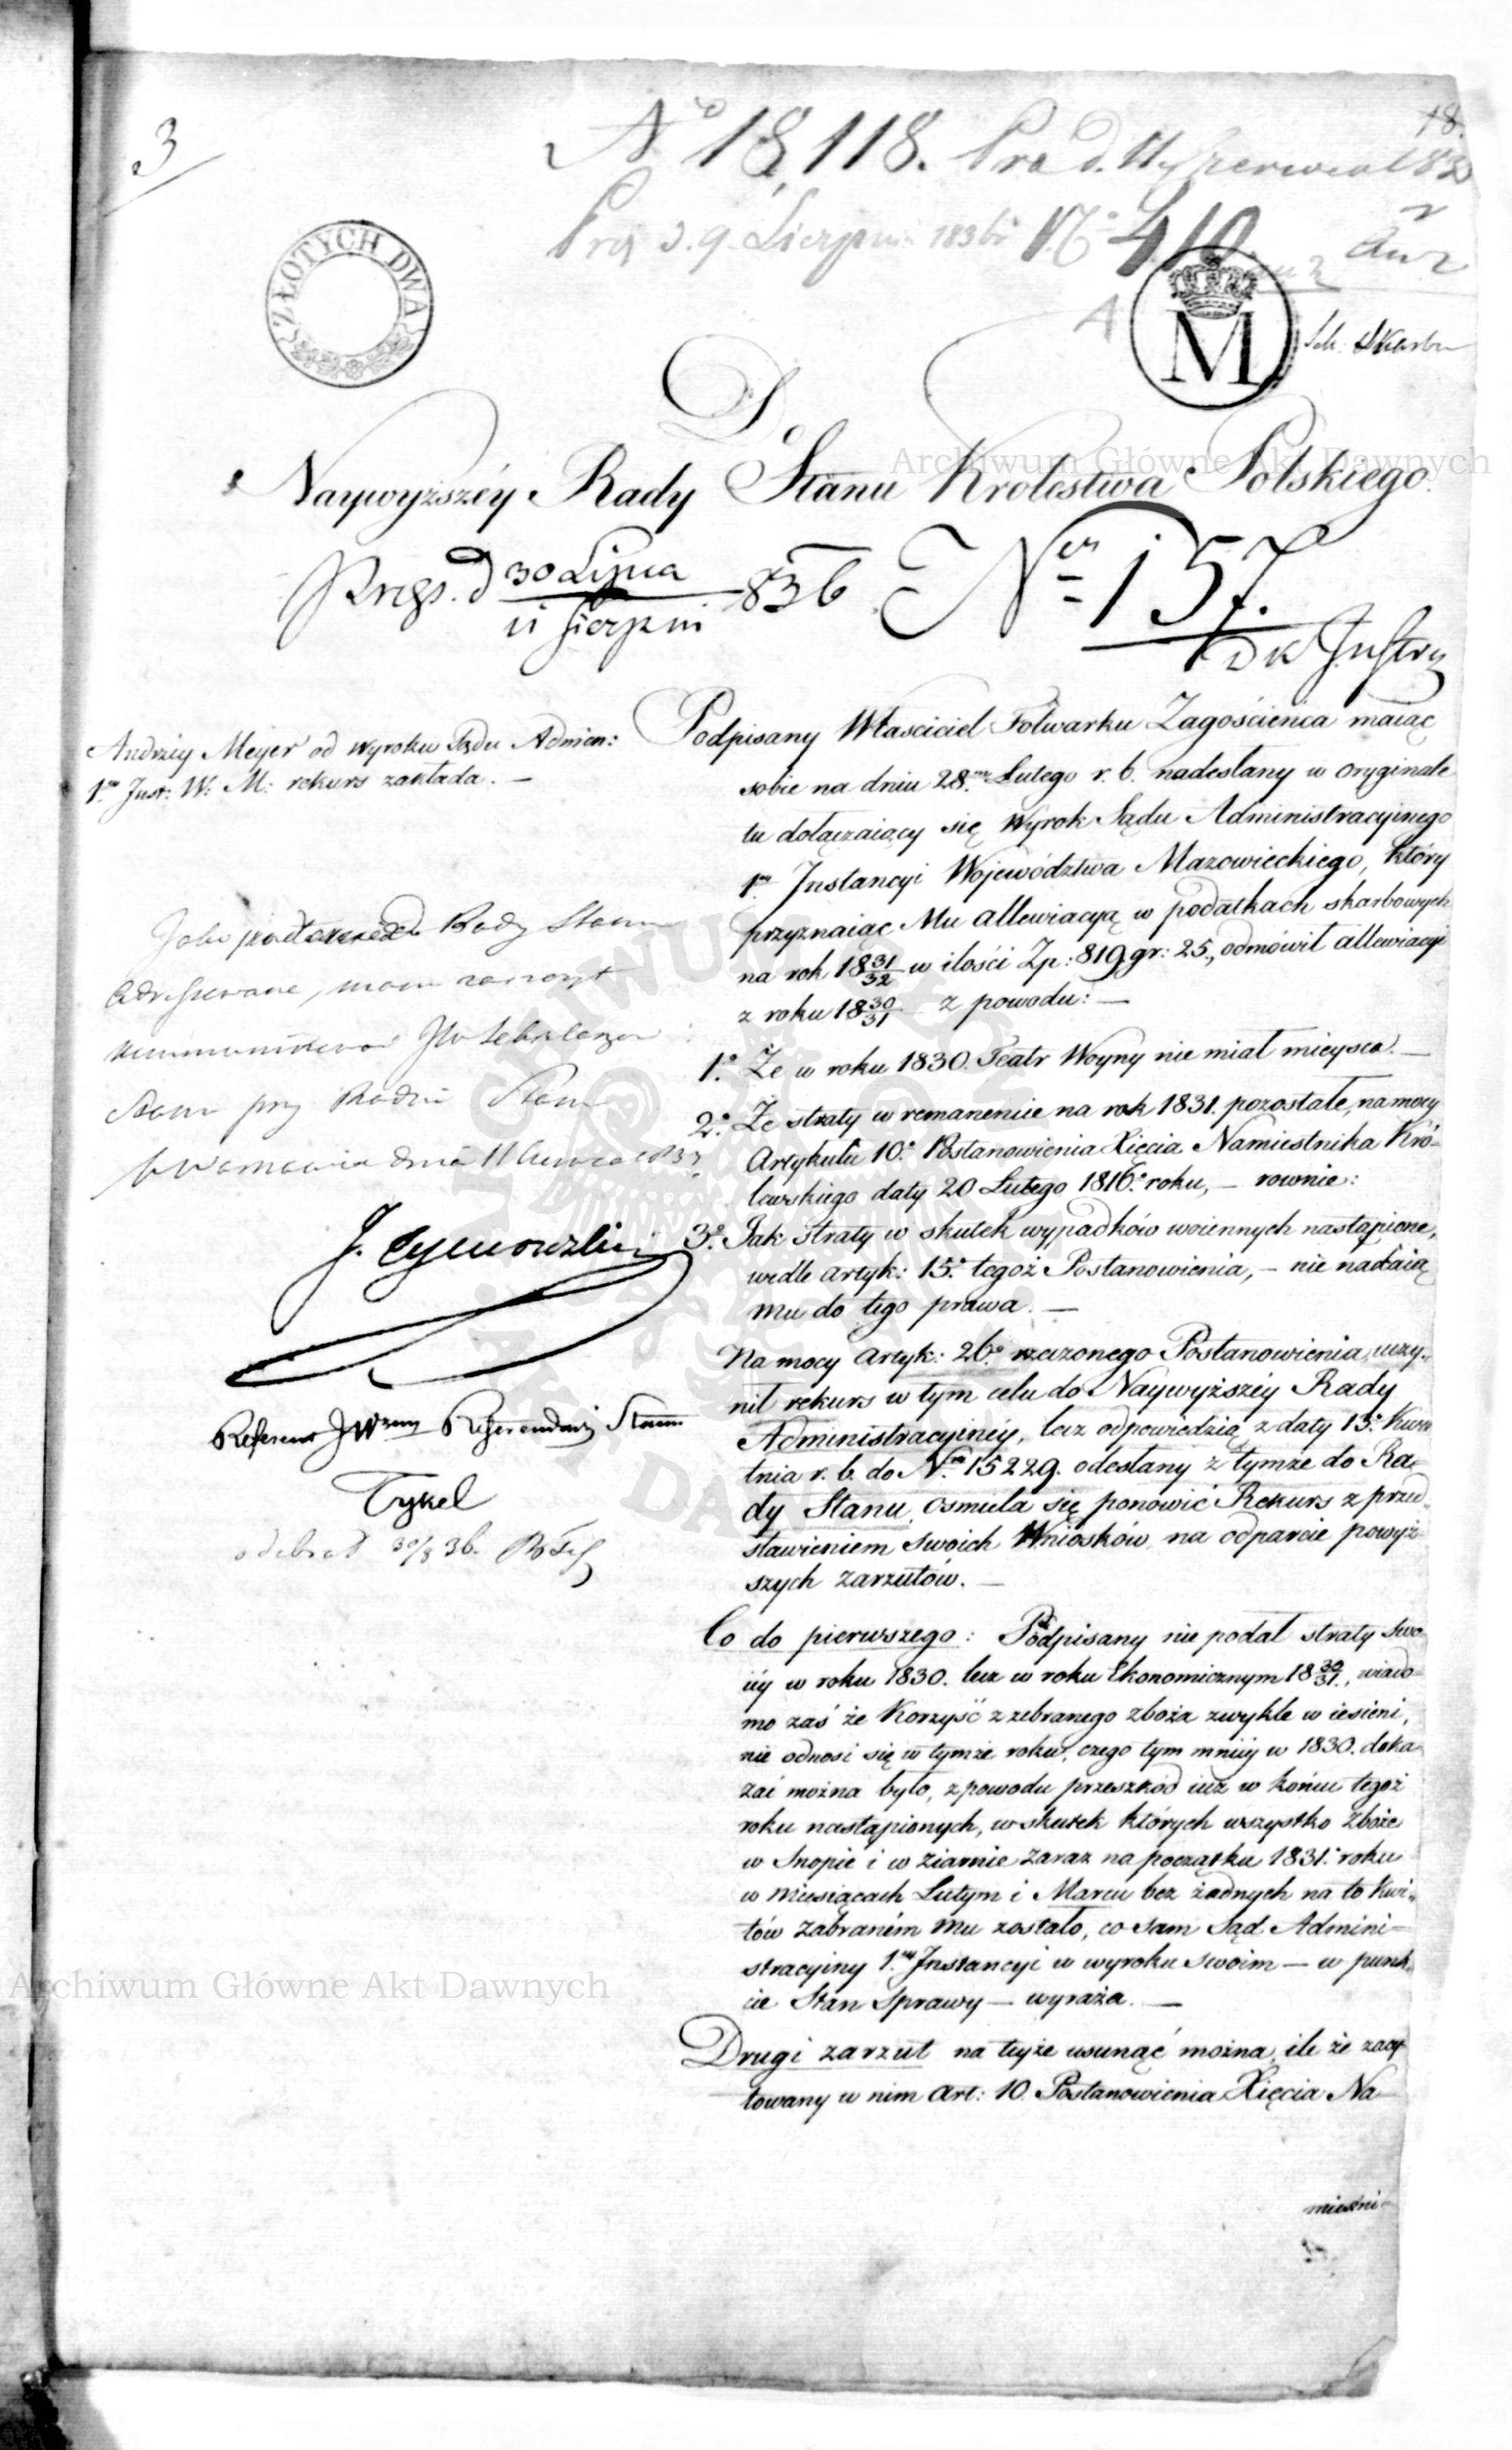 3
18.
No 18,118. Pra d. 11 Czerwca 1833
Prz d. 9. Sierpnia 1836 No 410
ZŁOTYCH DWA
M
A
Sek: Skarbu
Do
Naywyższéy Rady Stanu Krolestwa Polskiego.
Przs. d 30 Lipca / 11 Sierpni 836 Ner 157.
Andrzéy Meyer od wyroku Sądu Admin:
1.ey Inst: W: M: rekurs zakłada. —
Jako Rady Stanu
adressowane, mam zaszczyt
Stanu przy Radzie Stanu
w Warszawie dnia 11 Czerwca 1833
Referent JWzny Referendarz Stanu
Tykel
odebrał 30/8 36.
Podpisany Własciciel Folwarku Zagościeńca maiąc
sobie na dniu 28.m Lutego r. b. nadesłany w oryginale
tu dołączaiący się Wyrok Sądu Administracyinego
1.ey Instancyi Województwa Mazowieckiego, który
przyznaiąc Mu allewiacyą w podatkach skarbowych
na rok 18 31/32 w ilości Zp: 819 gr: 25., odmówił allewiacyi
z roku 18 30/31 z powodu: —
1.o Że w roku 1830. Teatr Woyny nie miał mieysca. —
2.o Że straty w remanencie na rok 1831. pozostałe, na mocy
Artykułu 10.o Postanowienia Xięcia Namiestnika Kró-
lewskiego daty 20 Lutego 1816.o roku, — rownie:
3.o Jak straty w skutek wypadków woiennych nastąpione,
wedle artyk: 15.o tegoż Postanowienia, — nie nadaią
mu do tego prawa. —
Na mocy artyk: 26.o rzeczonego Postanowienia, uczy-
nił rekurs w tym celu do Naywyższéy Rady
Administracyinéy, lecz odpowiedzią z daty 13.o Kwie
tnia r. b. do Nru 15229. odesłany z tymże do Ra-
dy Stanu, osmiela się ponowić Rekurs z przed-
stawieniem swoich Wniosków na odparcie powyż-
szych zarzutów. —
Co do pierwszego: Podpisany nie podał straty swo-
iéy w roku 1830. lecz w roku Ekonomicznym 18 30/31., wiado-
mo zaś że Korzyść z zebranego zboża zwykle w iesieni,
nie odnosi się w tymże roku, czego tym mniéy w 1830. doka-
zać można było, z powodu przeszkód iuż w końcu tegoż
roku nastąpionych, w skutek których wszystko zboże
w Snopie i w ziarnie zaraz na początku 1831.o roku
w miesiącach Lutym i Marcu bez żadnych na to kwi-
tów zabraném mu zostało, co sam Sąd Admini-
stracyiny 1.ey Instancyi w wyroku swoim — w punk-
cie Stan Sprawy — wyraża. —
Drugi zarzut na tyże usunąć można, ile że zacy-
towany w nim art: 10. Postanowienia Xięcia Na-
miestni-
Archiwum Główne Akt Dawnych
Archiwum Główne Akt Dawnych